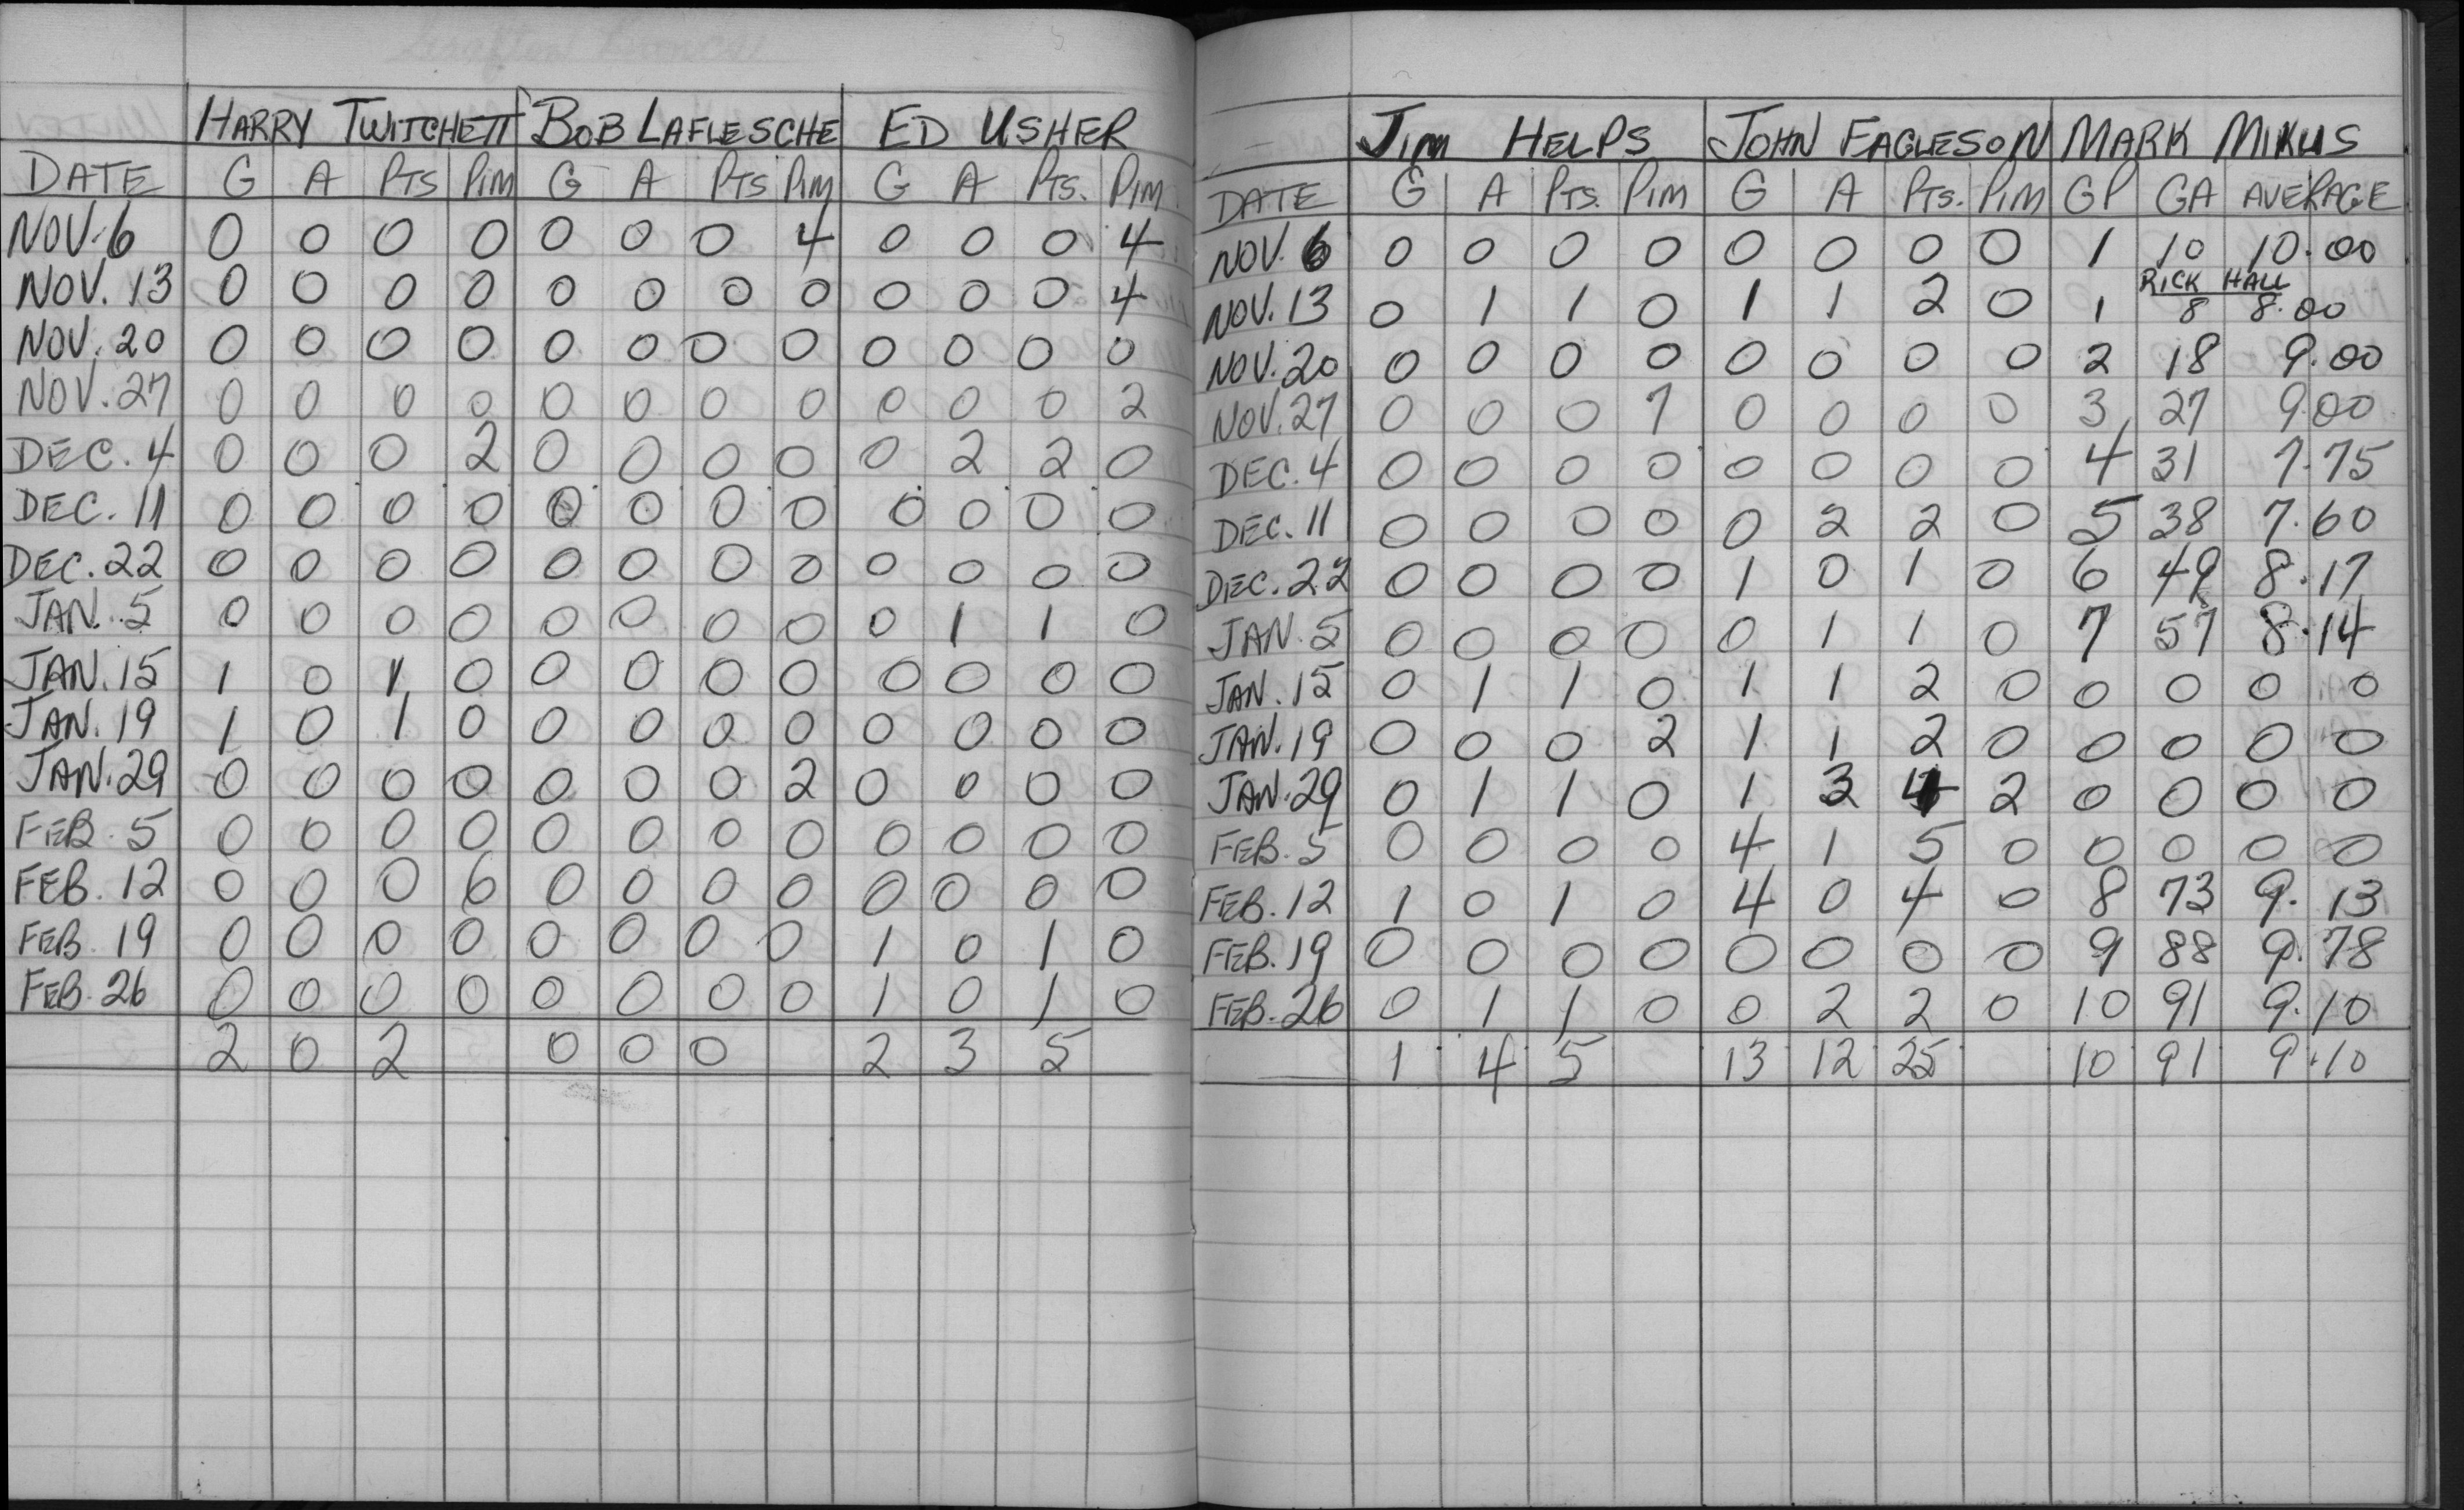 HARRY TWITCHETT BOB LAFLESCHE ED USHER
DATE G A PTS PIM G A PTS PIM G A PTS. PIM
NOV. 6 0 0 0 0 0 0 0 4 0 0 0 4
NOV. 13 0 0 0 0 0 0 0 0 0 0 0 4
NOV. 20 0 0 0 0 0 0 0 0 0 0 0 0
NOV. 27 0 0 0 0 0 0 0 0 0 0 0 2
DEC. 4 0 0 0 2 0 0 0 0 0 2 2 0
DEC. 11 0 0 0 0 0 0 0 0 0 0 0 0
DEC. 22 0 0 0 0 0 0 0 0 0 0 0 0
JAN. 5 0 0 0 0 0 0 0 0 0 1 1 0
JAN. 15 1 0 1 0 0 0 0 0 0 0 0 0
JAN. 19 1 0 1 0 0 0 0 0 0 0 0 0
JAN. 29 0 0 0 0 0 0 0 2 0 0 0 0
FEB. 5 0 0 0 0 0 0 0 0 0 0 0 0
FEB. 12 0 0 0 6 0 0 0 0 0 0 0 0
FEB. 19 0 0 0 0 0 0 0 0 1 0 1 0
FEB. 26 0 0 0 0 0 0 0 0 1 0 1 0
2 0 2 0 0 0 2 3 5
JIM HELPS JOHN EAGLESON MARK MIKUS
DATE G A PTS. PIM G A PTS. PIM GP GA AVERAGE
NOV. 6 0 0 0 0 0 0 0 0 1 10 10.00
RICK HALL
NOV. 13 0 1 1 0 1 1 2 0 1 8 8.00
NOV. 20 0 0 0 0 0 0 0 0 2 18 9.00
NOV. 27 0 0 0 7 0 0 0 0 3 27 9.00
DEC. 4 0 0 0 0 0 0 0 0 4 31 7.75
DEC. 11 0 0 0 0 0 2 2 0 5 38 7.60
DEC. 22 0 0 0 0 1 0 1 0 6 49 8.17
JAN. 5 0 0 0 0 0 1 1 0 7 57 8.14
JAN. 15 0 1 1 0 1 1 2 0 0 0 0 0
JAN. 19 0 0 0 2 1 1 2 0 0 0 0 0
JAN. 29 0 1 1 0 1 3 4 2 0 0 0 0
FEB. 5 0 0 0 0 4 1 5 0 0 0 0 0
FEB. 12 1 0 1 0 4 0 4 0 8 73 9.13
FEB. 19 0 0 0 0 0 0 0 0 9 88 9.78
FEB. 26 0 1 1 0 0 2 2 0 10 91 9.10
1 4 5 13 12 25 10 91 9.10